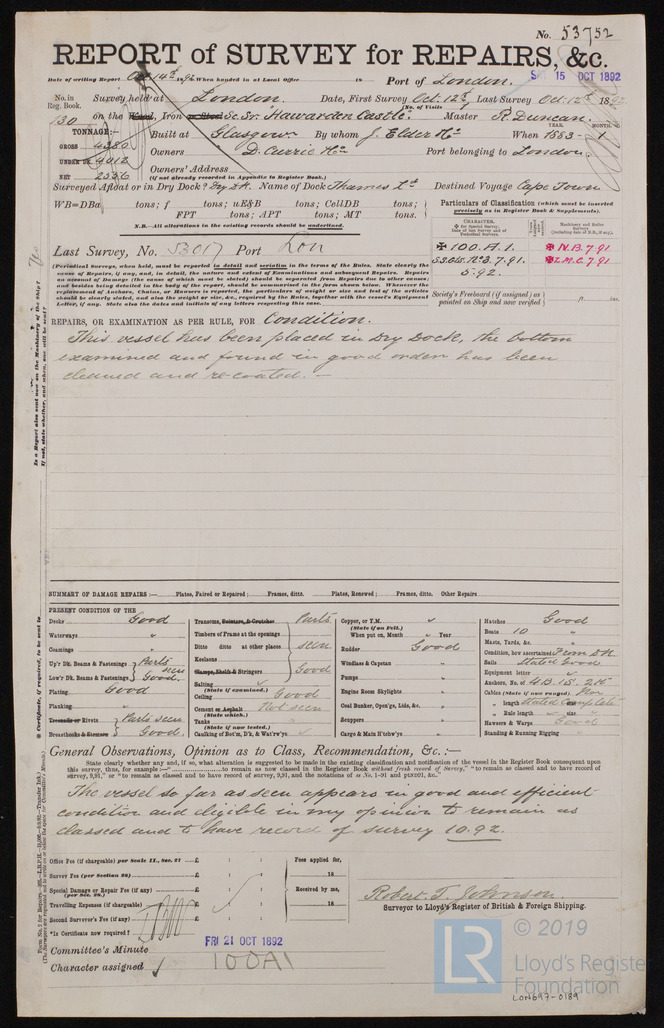 No. 53752
REPORT of SURVEY for REPAIRS, &c.
Date of writing Report Oct 14th 1892 When handed in at Local Office 18 Port of London. S 15 OCT 1892
No. in Reg. Book. Survey held at London. Date, First Survey Oct. 12th Last Survey Oct. 12th 1892
(No. of Visits
130 on the Wood, Iron or Steel Sc. Sr. Hawarden Castle. Master R. Duncan.
TONNAGE:— Built at Glasgow By whom J. Elder & Co When 1883 - 1
YEAR. MONTH.
GROSS 4380
UNDER DK 4012 Owners D. Currie & Co Port belonging to London.
NET 2556 Owners' Address
(if not already recorded in Appendix to Register Book.)
Surveyed Afloat or in Dry Dock? Dry Dk. Name of Dock Thames Destined Voyage Cape Town
WB=DBa tons; f tons; uE&B tons; CellDB tons;
FPT tons; APT tons; MT tons.
N.B.—All alterations in the existing records should be underlined.
Particulars of Classification (which must be inserted precisely as in Register Book & Supplements).
CHARACTER.
Machinery and Boiler Surveys
Last Survey, No. 53017 Port Lon
100.A.1. N.B.7.91
L.M.C.7.91
5.92.
(Periodical Surveys, when held, must be reported in detail and seriatim in the terms of the Rules. State clearly the cause of Repairs, if any, and, in detail, the nature and extent of Examinations and subsequent Repairs. Repairs on account of Damage (the cause of which must be stated) should be separated from Repairs due to other causes; and besides being detailed in the body of the report, should be summarised in the form shown below. Whenever the replacement of Anchors, Chains, or Hawsers is reported, the particulars of weight or size and test of the articles should be clearly stated, and also the weight or size, &c., required by the Rules, together with the vessel's Equipment Letter, if any. State also the dates and initials of any letters respecting this case.
Society's Freeboard (if assigned) as painted on Ship and now verified ft. ins.
REPAIRS, OR EXAMINATION AS PER RULE, FOR Condition.
This vessel has been placed in Dry Dock, the bottom
examined and found in good order has been
cleaned and re-coated. —
Is a Report also sent now on the Machinery of the Ship?
If not, state whether, and when, one will be sent?
SUMMARY OF DAMAGE REPAIRS:— Plates, Faired or Repaired; Frames, ditto. Plates, Renewed; Frames, ditto. Other Repairs
PRESENT CONDITION OF THE
Decks Good
Waterways "
Coamings "
Up'r Dk. Beams & Fastenings Parts seen
Low'r Dk. Beams & Fastenings Good.
Plating Good
Planking
Treenails or Rivets Parts seen
Breasthooks & Stemson Good
Transoms, Pointers, & Crutches Parts
Timbers of Frame at the openings
Ditto ditto at other places seen
Keelsons
Clamps, Shelfs & Stringers Good
Salting
(State if examined.)
Ceiling Good
Cement or Asphalt Not seen
(State which.)
Tanks
(State if now tested.)
Caulking of Bot'm, D'k, & Wat'rw'ys
Copper, or Y.M.
(State if on Felt.)
When put on, Month Year
Rudder Good
Windlass & Capstan "
Pumps "
Engine Room Skylights "
Coal Bunker, Open'gs, Lids, &c. "
Scuppers "
Cargo & Main H'tchw'ys "
Hatches Good
Boats 10 "
Masts, Yards, &c. "
Condition, how ascertained From Dk
Sails Stated Good
Equipment letter
Anchors, No. of 4B. 1S. 2K
Cables (State if now ranged). Nor
" length Stated Complete
" Rule length size
Hawsers & Warps Good
Standing & Running Rigging "
General Observations, Opinion as to Class, Recommendation, &c.:—
State clearly whether any, and if so, what alteration is suggested to be made in the existing classification and notification of the vessel in the Register Book consequent upon this survey, thus, for example:—"
The vessel so far as seen appears in good and efficient
condition and eligible in my opinion to remain as
classed and to have record of survey 10.92.
Office Fee (if chargeable) per Scale II., Sec. 27 £ : : Fees applied for,
Survey Fee (per Section 28) £ : : 18
Special Damage or Repair Fee (if any) £ : : Received by me,
(per Sec. 28.)
Travelling Expenses (if chargeable) £ : : 18
Second Surveyor's Fee (if any) £ : :
*Is Certificate now required?
Robert. T. Johnson.
Surveyor to Lloyd's Register of British & Foreign Shipping.
Committee's Minute FRI 21 OCT 1892
Character assigned 100A1
© 2019
LR
Lloyd's Register
Foundation
LON697-0189